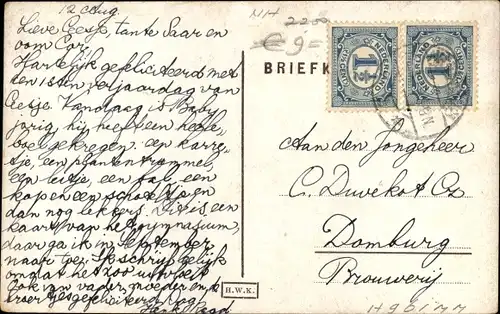 12 Aug.
Lieve Ceesje, tante Saar en
oom Cor.
Hartelijk gefeliciteerd met
den 1sten verjaardag van
Ceesje. Vandaag is Baby
jarig, hij heeft een heele
boel gekregen. een karre-
tje, een plantentrommel
een tuitje, een bal, een
kapen een schoteltje en
dan nog lekkers. Dit is een
kaart van het gymnasium,
daar ga ik in September
naar toe. Ik schrijf gelijk
omdat het zoo uitkomt
Ook van vader, moeder en
broertjes gefeliciteerd
Henk
NH
2200
€ 9=
BRIEFK
NEDERLAND
1½
NEDERLAND
1½
Aan den Jongeheer
C. Duvekot Cz
Domburg
Brouwerij
H.W.K.